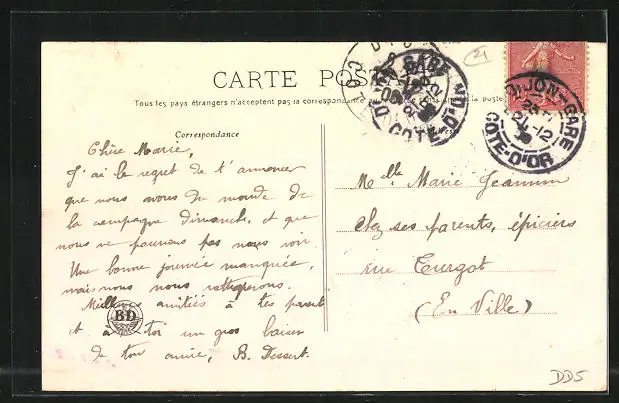 CARTE POSTALE
Tous les pays étrangers n'acceptent pas la correspondance
Correspondance
Chère Marie,
J'ai le regret de t'annoncer
que nous avons du monde de
la campagne dimanche, et que
nous ne pouvons pas nous voir.
Une bonne journée manquée,
mais nous nous rattraperons.
Mille amitiés à tes parents
et à toi un gros baiser
de ton amie, B. Dessert.
BD
Melle Marie Jeannin
chez ses parents, épiciers
rue Turgot
(En Ville)
DIJON-GARE
COTE-D'OR
DD5